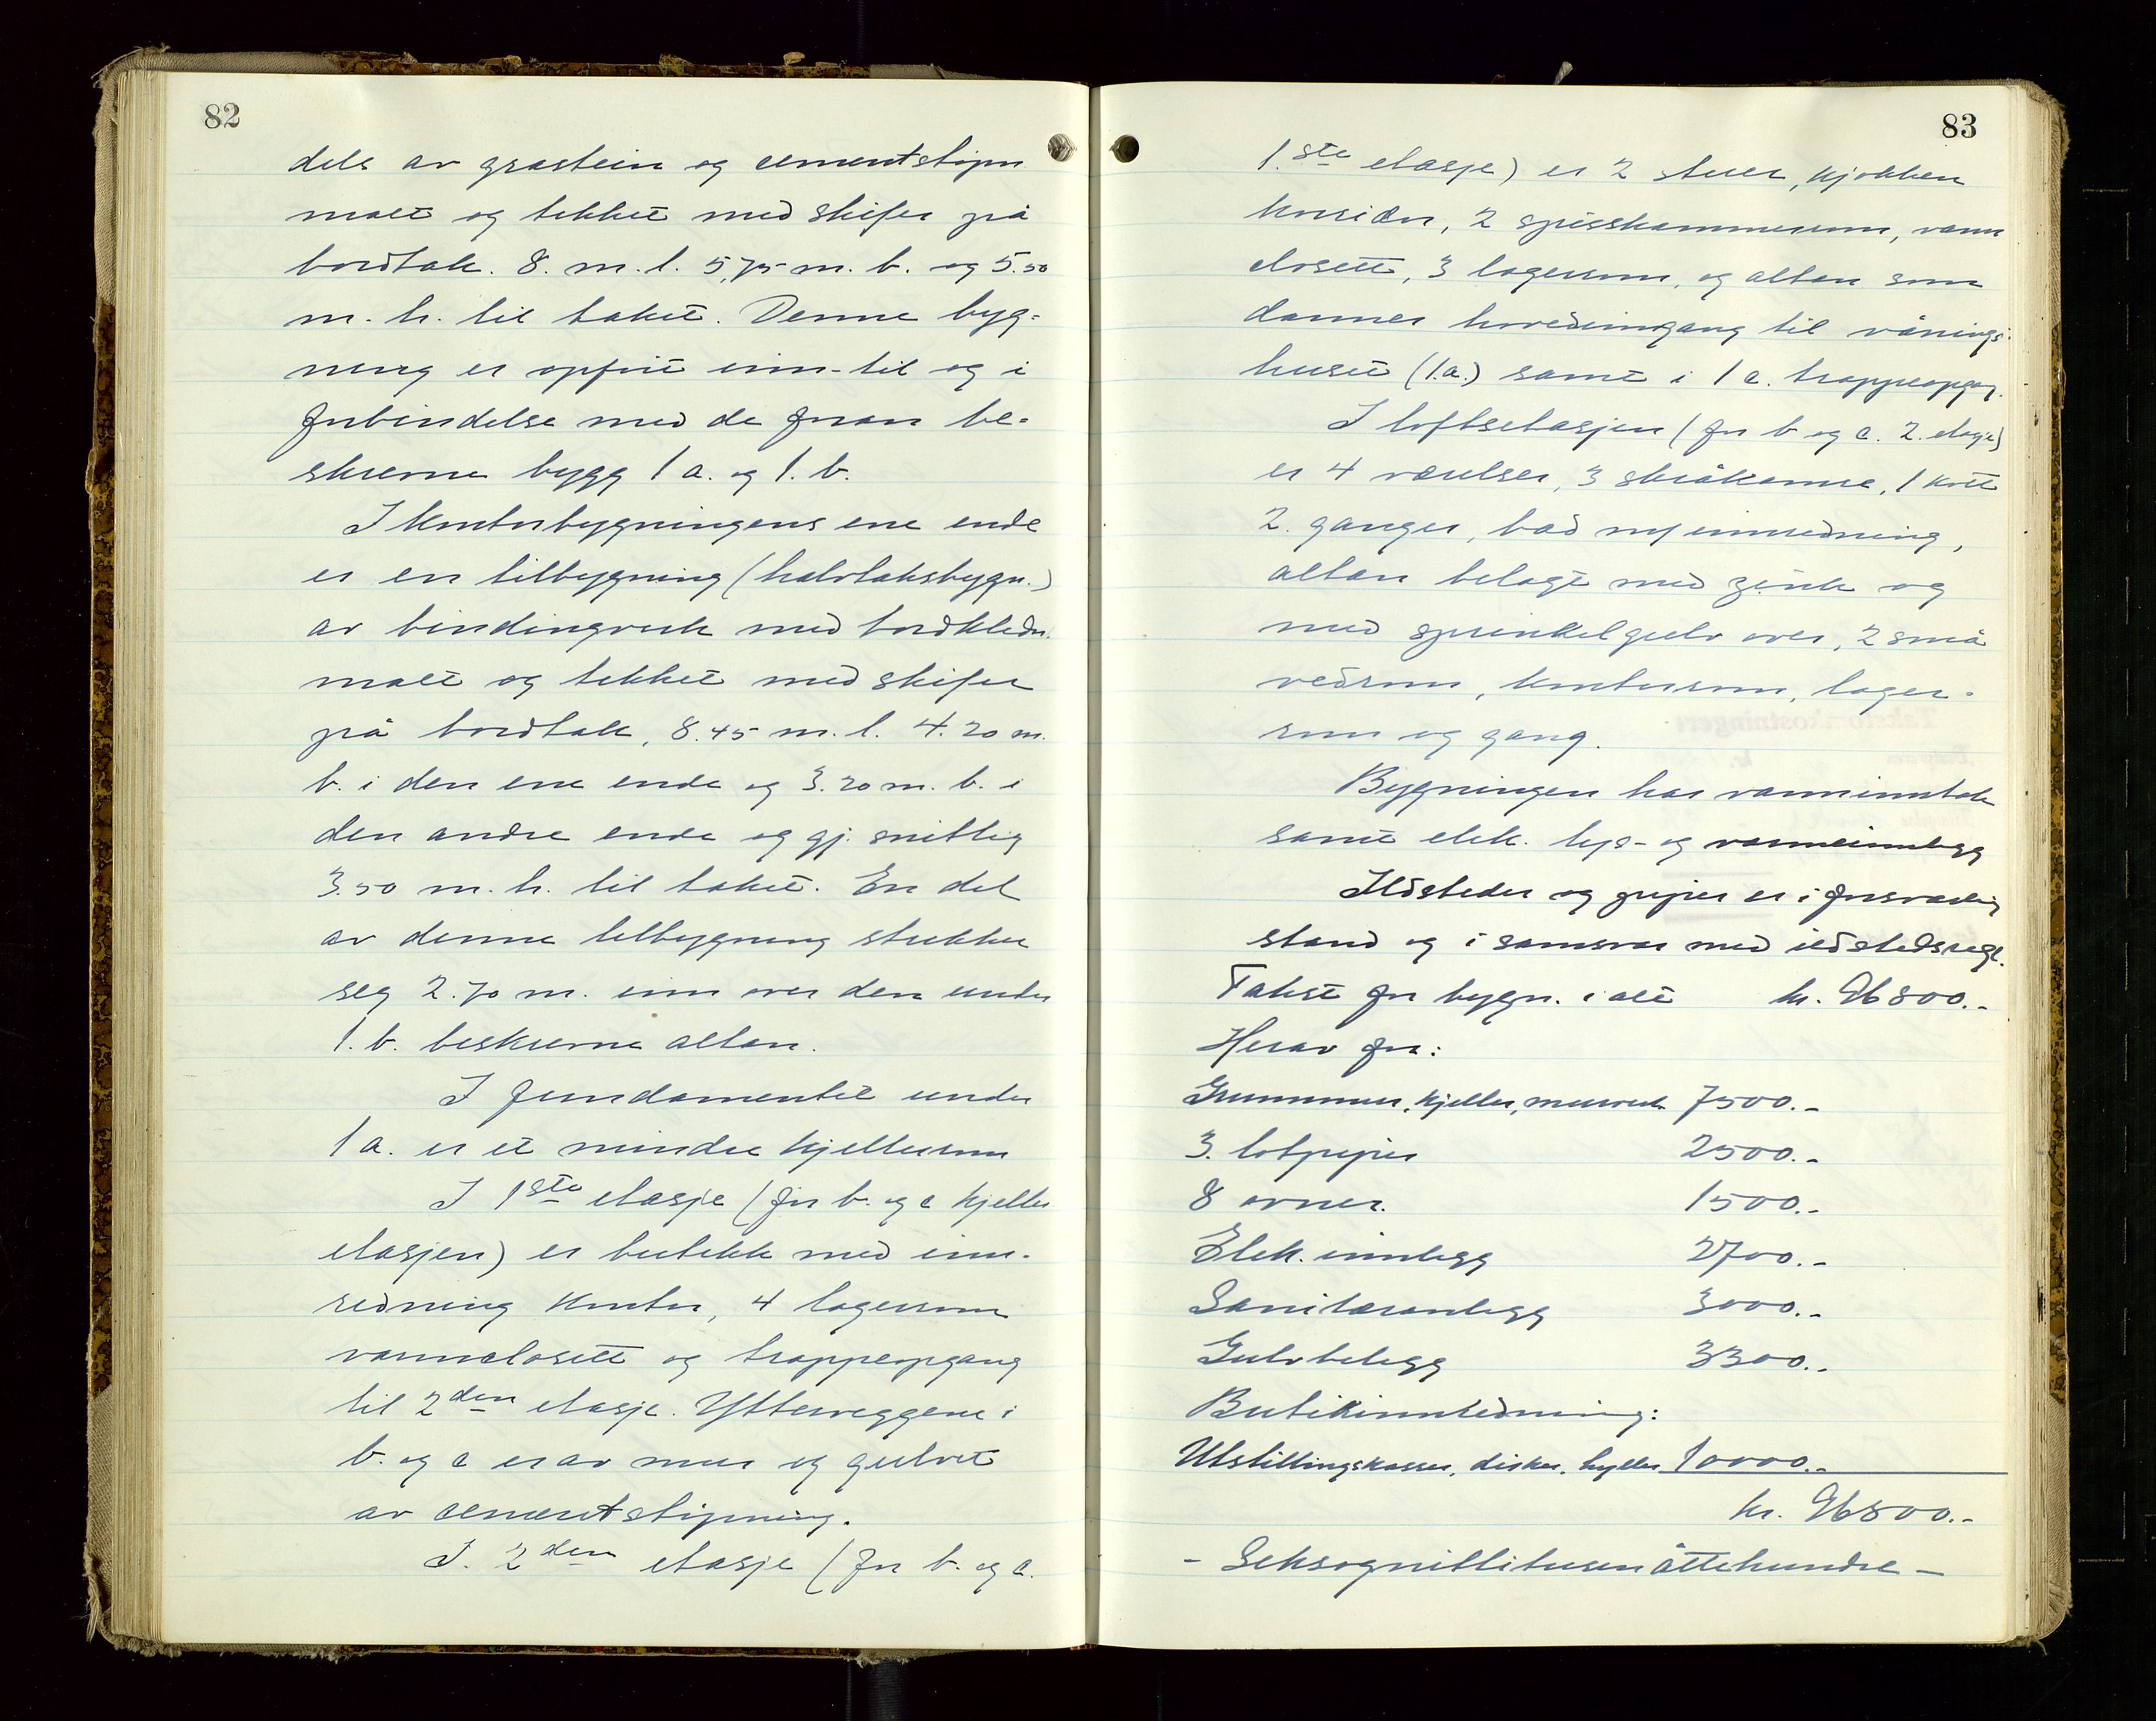 82
dels av gråstein og cementstøpn
malt og tekket med skifer på
bordtak. 8. m. l. 5,75 m. b. og 5.50
m. h. til taket. Denne byg-
ning er opført inn-til og i
forbindelse med de foran be-
skrevne bygg 1 a. og 1. b.
I kontorbygningens ene ende
er en tilbygning (halvtaksbygn.)
av bindingverk med bordkledn.
malt og tekket med skifer
på bordtak, 8.45 m. l. 4.20 m.
b. i den ene ende og 3.20 m. b. i
den andre ende og gj. snittlig
3.50 m. h. til taket. En del
av denne tilbygning strekker
seg 2.70 m. inn over den under
1. b. beskrevne altan.
I fundamentet under
1 a. er et mindre kjellerrom
I 1ste etasje (for b. og c kjeller
etasjen) er butikk med inn-
redning kontor, 4 lagerrom
vannclosett og trappeopgang
til 2den etasje. Ytterveggene i
b. og c er av mur og gulvet
av cementstøpning.
I. 2den etasje (for b. og c.
83
1.ste etasje) er 2 stuer, kjøkken
korridor, 2 spisskammerrom, vann
closett, 3 lagerrom, og altan som
danner hovedinngang til vånings-
huset (1.a.) samt i 1 c. trappeopgang.
I loftsetasjen (for b og c. 2. etasje)
er 4 værelser, 3 skråkamre, 1 kott
2. ganger, bad m/ innredning,
altan belagt med zink og
med sprinkelgulv over, 2 små
vedrom, kontorrom, lager-
rom og gang.
Bygningen har vanninntak
samt elek. lys- og varmeinnlegg
Ildsteder og piper er i forsvarlig
stand og i samsvar med ildstedsregl.
Takst for bygn. i alt kr. 96800.-
Herav for:
Grunnmur, kjeller, murverk 7500.-
3. løtpiper 2500.-
8 ovner. 1500.-
Elek. innlegg 2700.-
Sanitæranlegg 3000.-
Gulvbelegg 3300.-
Butikinnredning:
Utstillingskasser, disker, hyller 10000.-
kr. 96800.-
- Seksognittitusenåttehundre -